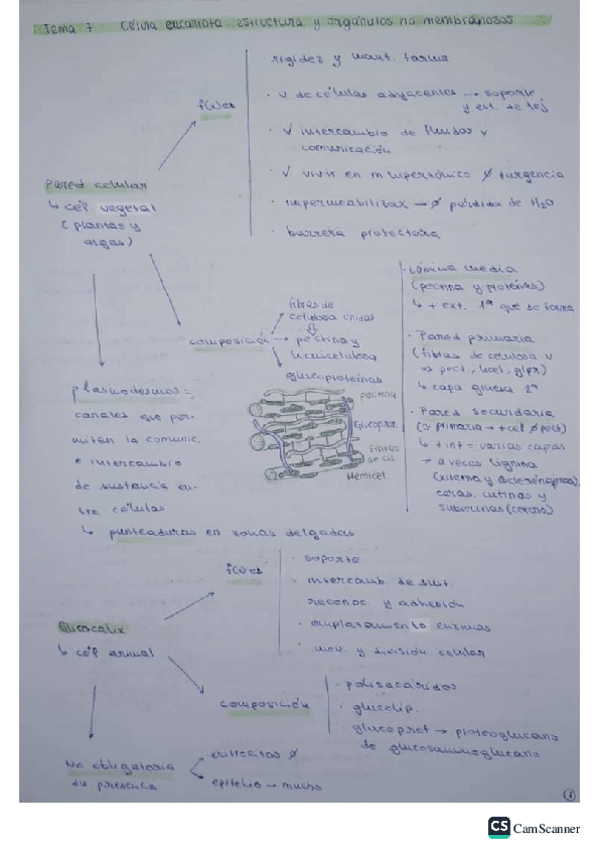 Tema 7 Célula eucariota estructura y orgánulos no membranosos
rigidez y mant. forma
f(x)es
· v de células adyacentes → soporte
y est. de tej
· √ intercambio de fluidos y
comunicación
· √ vivir en m hipertónico ∅ turgencia
· impermeabilizar → ∅ pérdida de H2O
· barrera protectora
Pared celular
↳ cél vegetal
(plantas y
algas)
composición
fibras de
celulosa unidas
→ pectina y
hemicelulosa
glucoproteínas
· Lámina media
(pectina y proteínas)
↳ + ext. 1ª que se forma
· Pared primaria
(fibras de celulosa v
pect., hcel, glpr)
↳ capa gruesa 1ª
· Pared secundaria
(≃ primaria → + cel ∅ pect)
↳ + int = varias capas
→ a veces lignina
ceras, cutinas y
suberinas (corcho)
pectina
Glucopr.
Fibras
de cel.
Hemicel.
plasmodermos =
canales que per-
miten la comunic.
e intercambio
de sustancia en-
tre células
↳ punteaduras en zonas delgadas
Glicocalix
↳ cél animal
f(x)es
· soporte
· intercamb. de sust.
reconoc y adhesión
· emplazamiento enzimas
· mov. y división celular
composición
· polisacáridos
· glucolip.
· glucoprot → proteoglucano
de glucosaminoglucano
No obligatoria
su presencia
eritrocitos ∅
epitelio → mucho
1
CS CamScanner